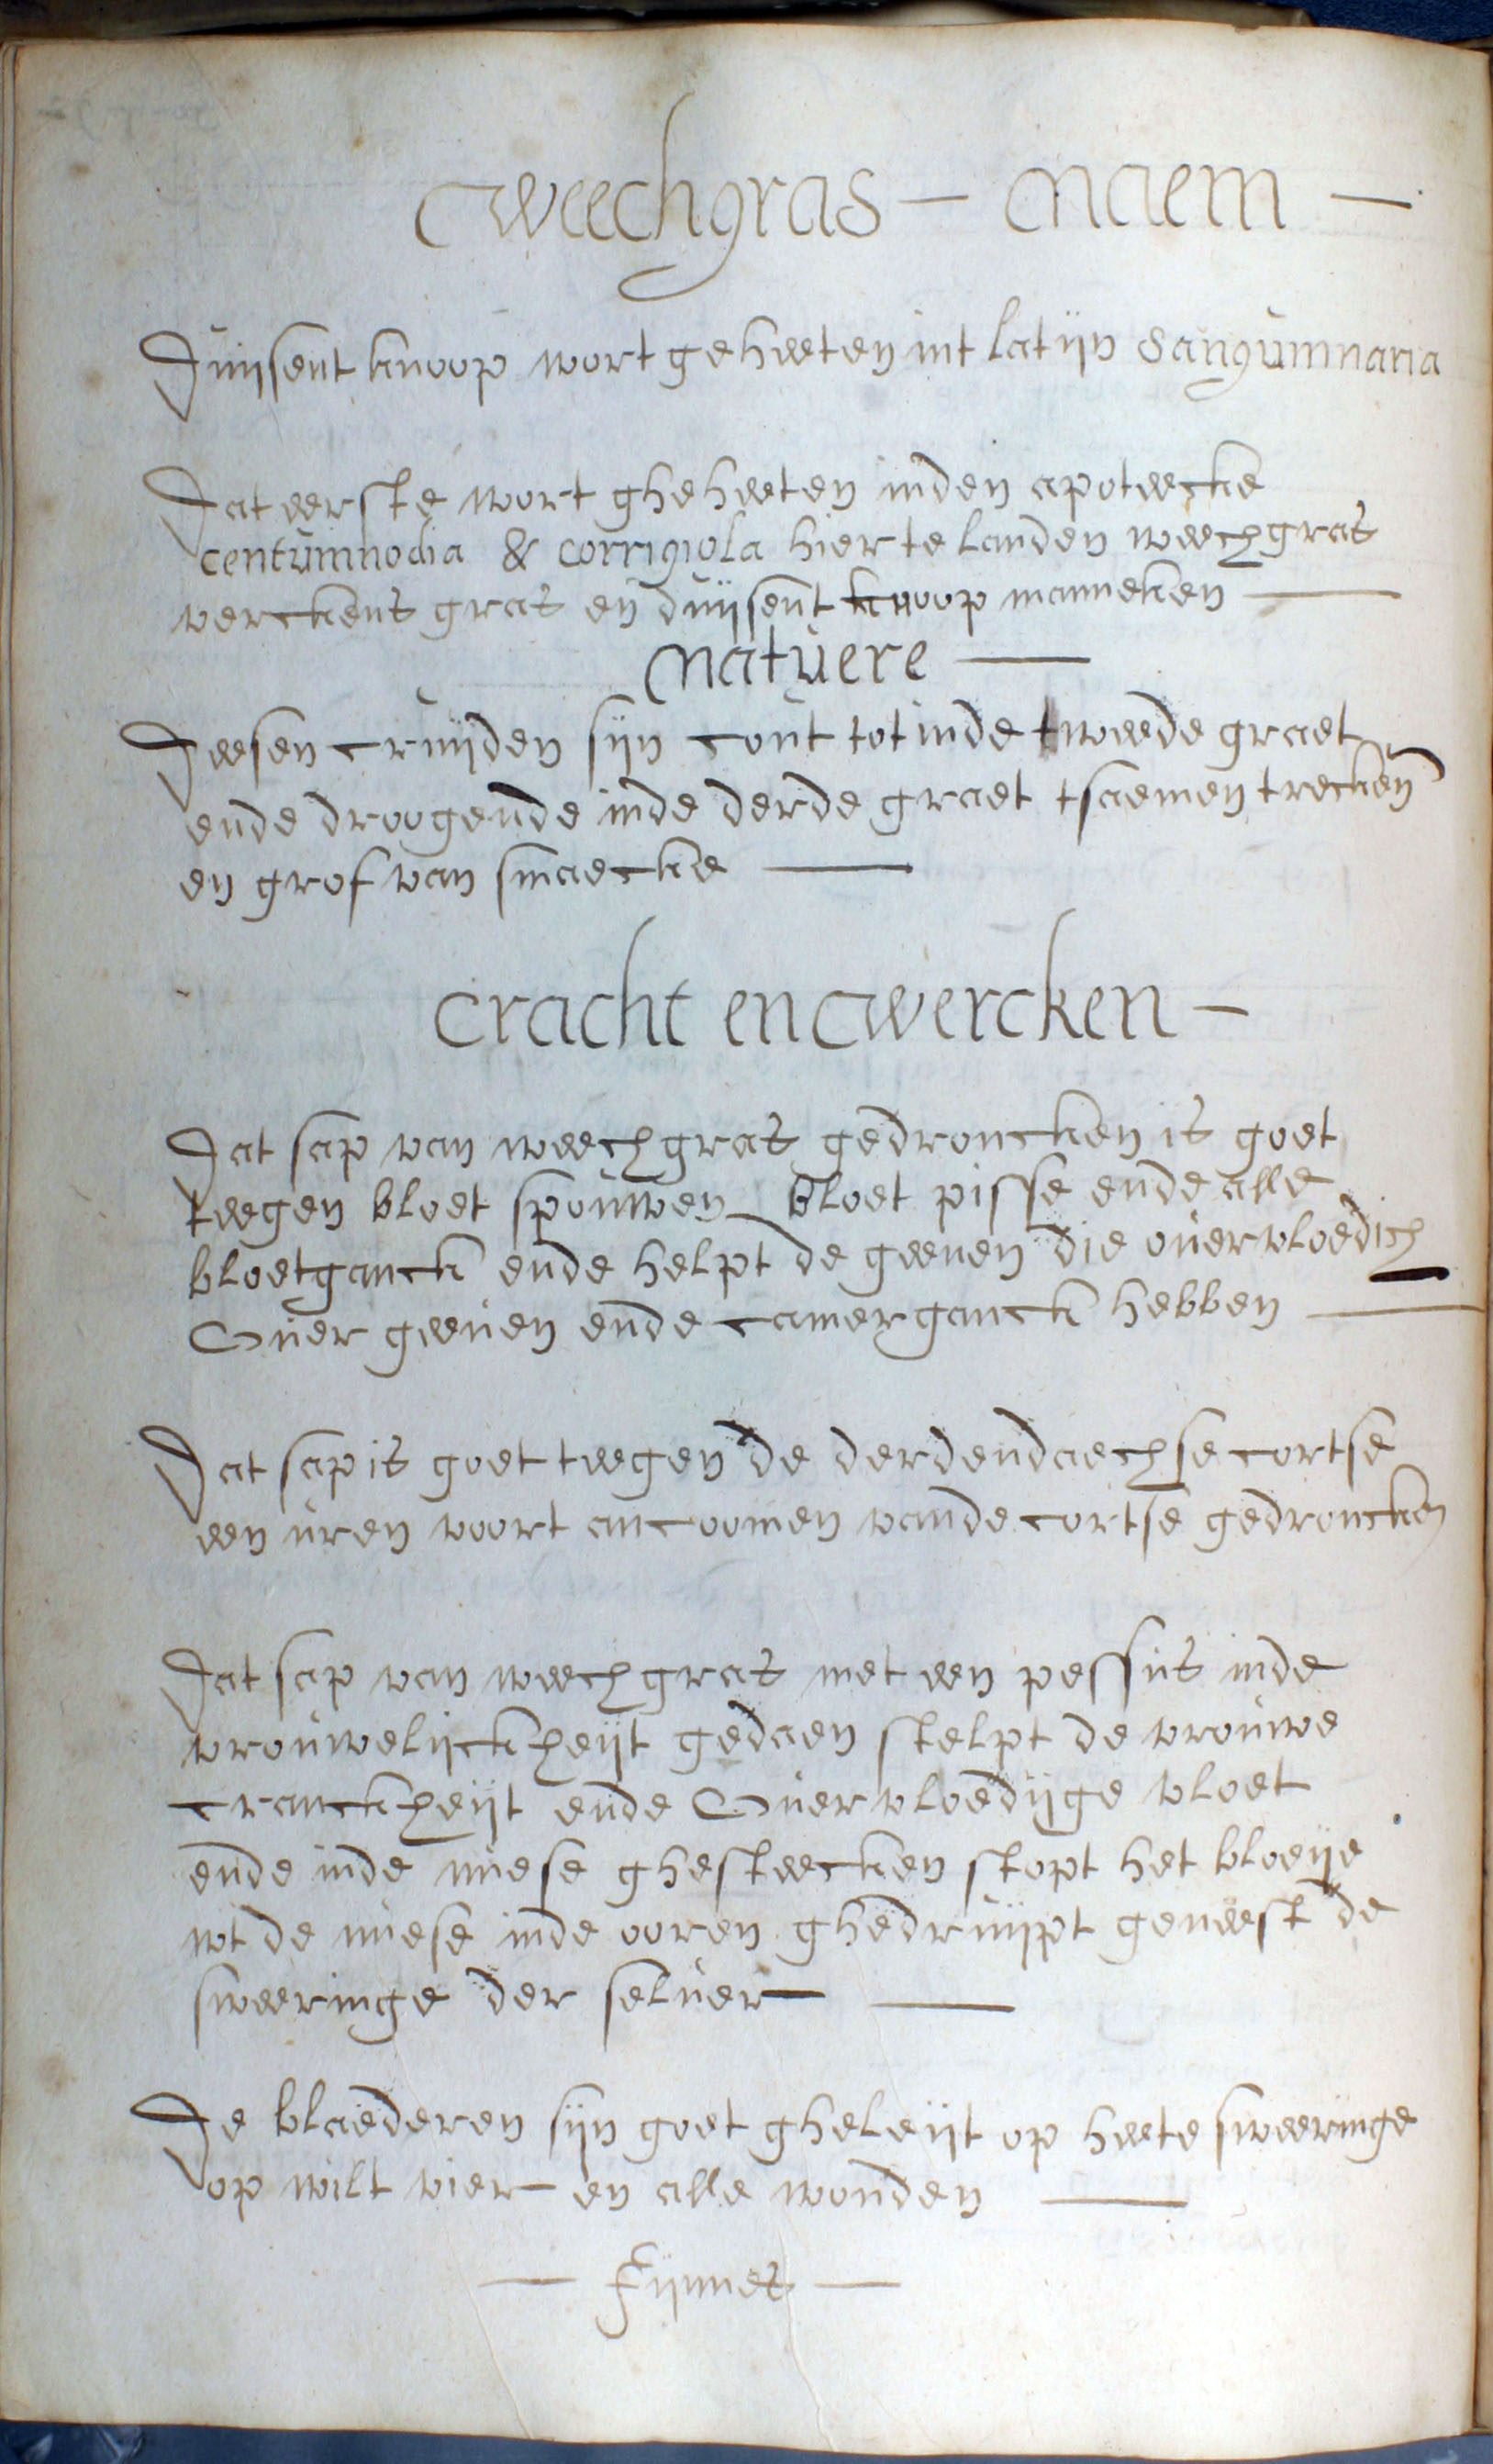 Weechgras — Naem —
Duijsent knoop wort geheeten int latijn Sanguinnaria
Dat eerste wort ghe heeten inden apoteecke
centumnodia & corrigiola hier te landen weechgras
verckens gras en duijsent knoop manneken —
Natuere —
Deesen cruijden sijn cout tot inde tweede graet
ende droogende inde derde graet tsaemen trecken
en grof van smaecke —
Cracht en Wercken —
Dat sap van weechgras gedroncken is goet
teegen bloet spouwen bloet pisse ende alle
bloetganck ende helpt de geenen die overvloedich
Over geeven ende camerganck hebben —
Dat sap is goet teegen de derdendaechse cortse
een uren voort ancoomen vande cortse gedroncken
Dat sap van weechgras met een pessus inde
vrouwelijckheijt gedaen stelpt de vrouwe
cranckheijt ende Overvloedijge vloet
ende inde nuese ghesteecken stopt het bloeije
wt de nuese inde ooren ghedruijpt geneest de
sweeringe der selver —
De blaederen sijn goet gheleijt op heete sweeringe
op wilt vier en alle wonden —
— Fijnnes —